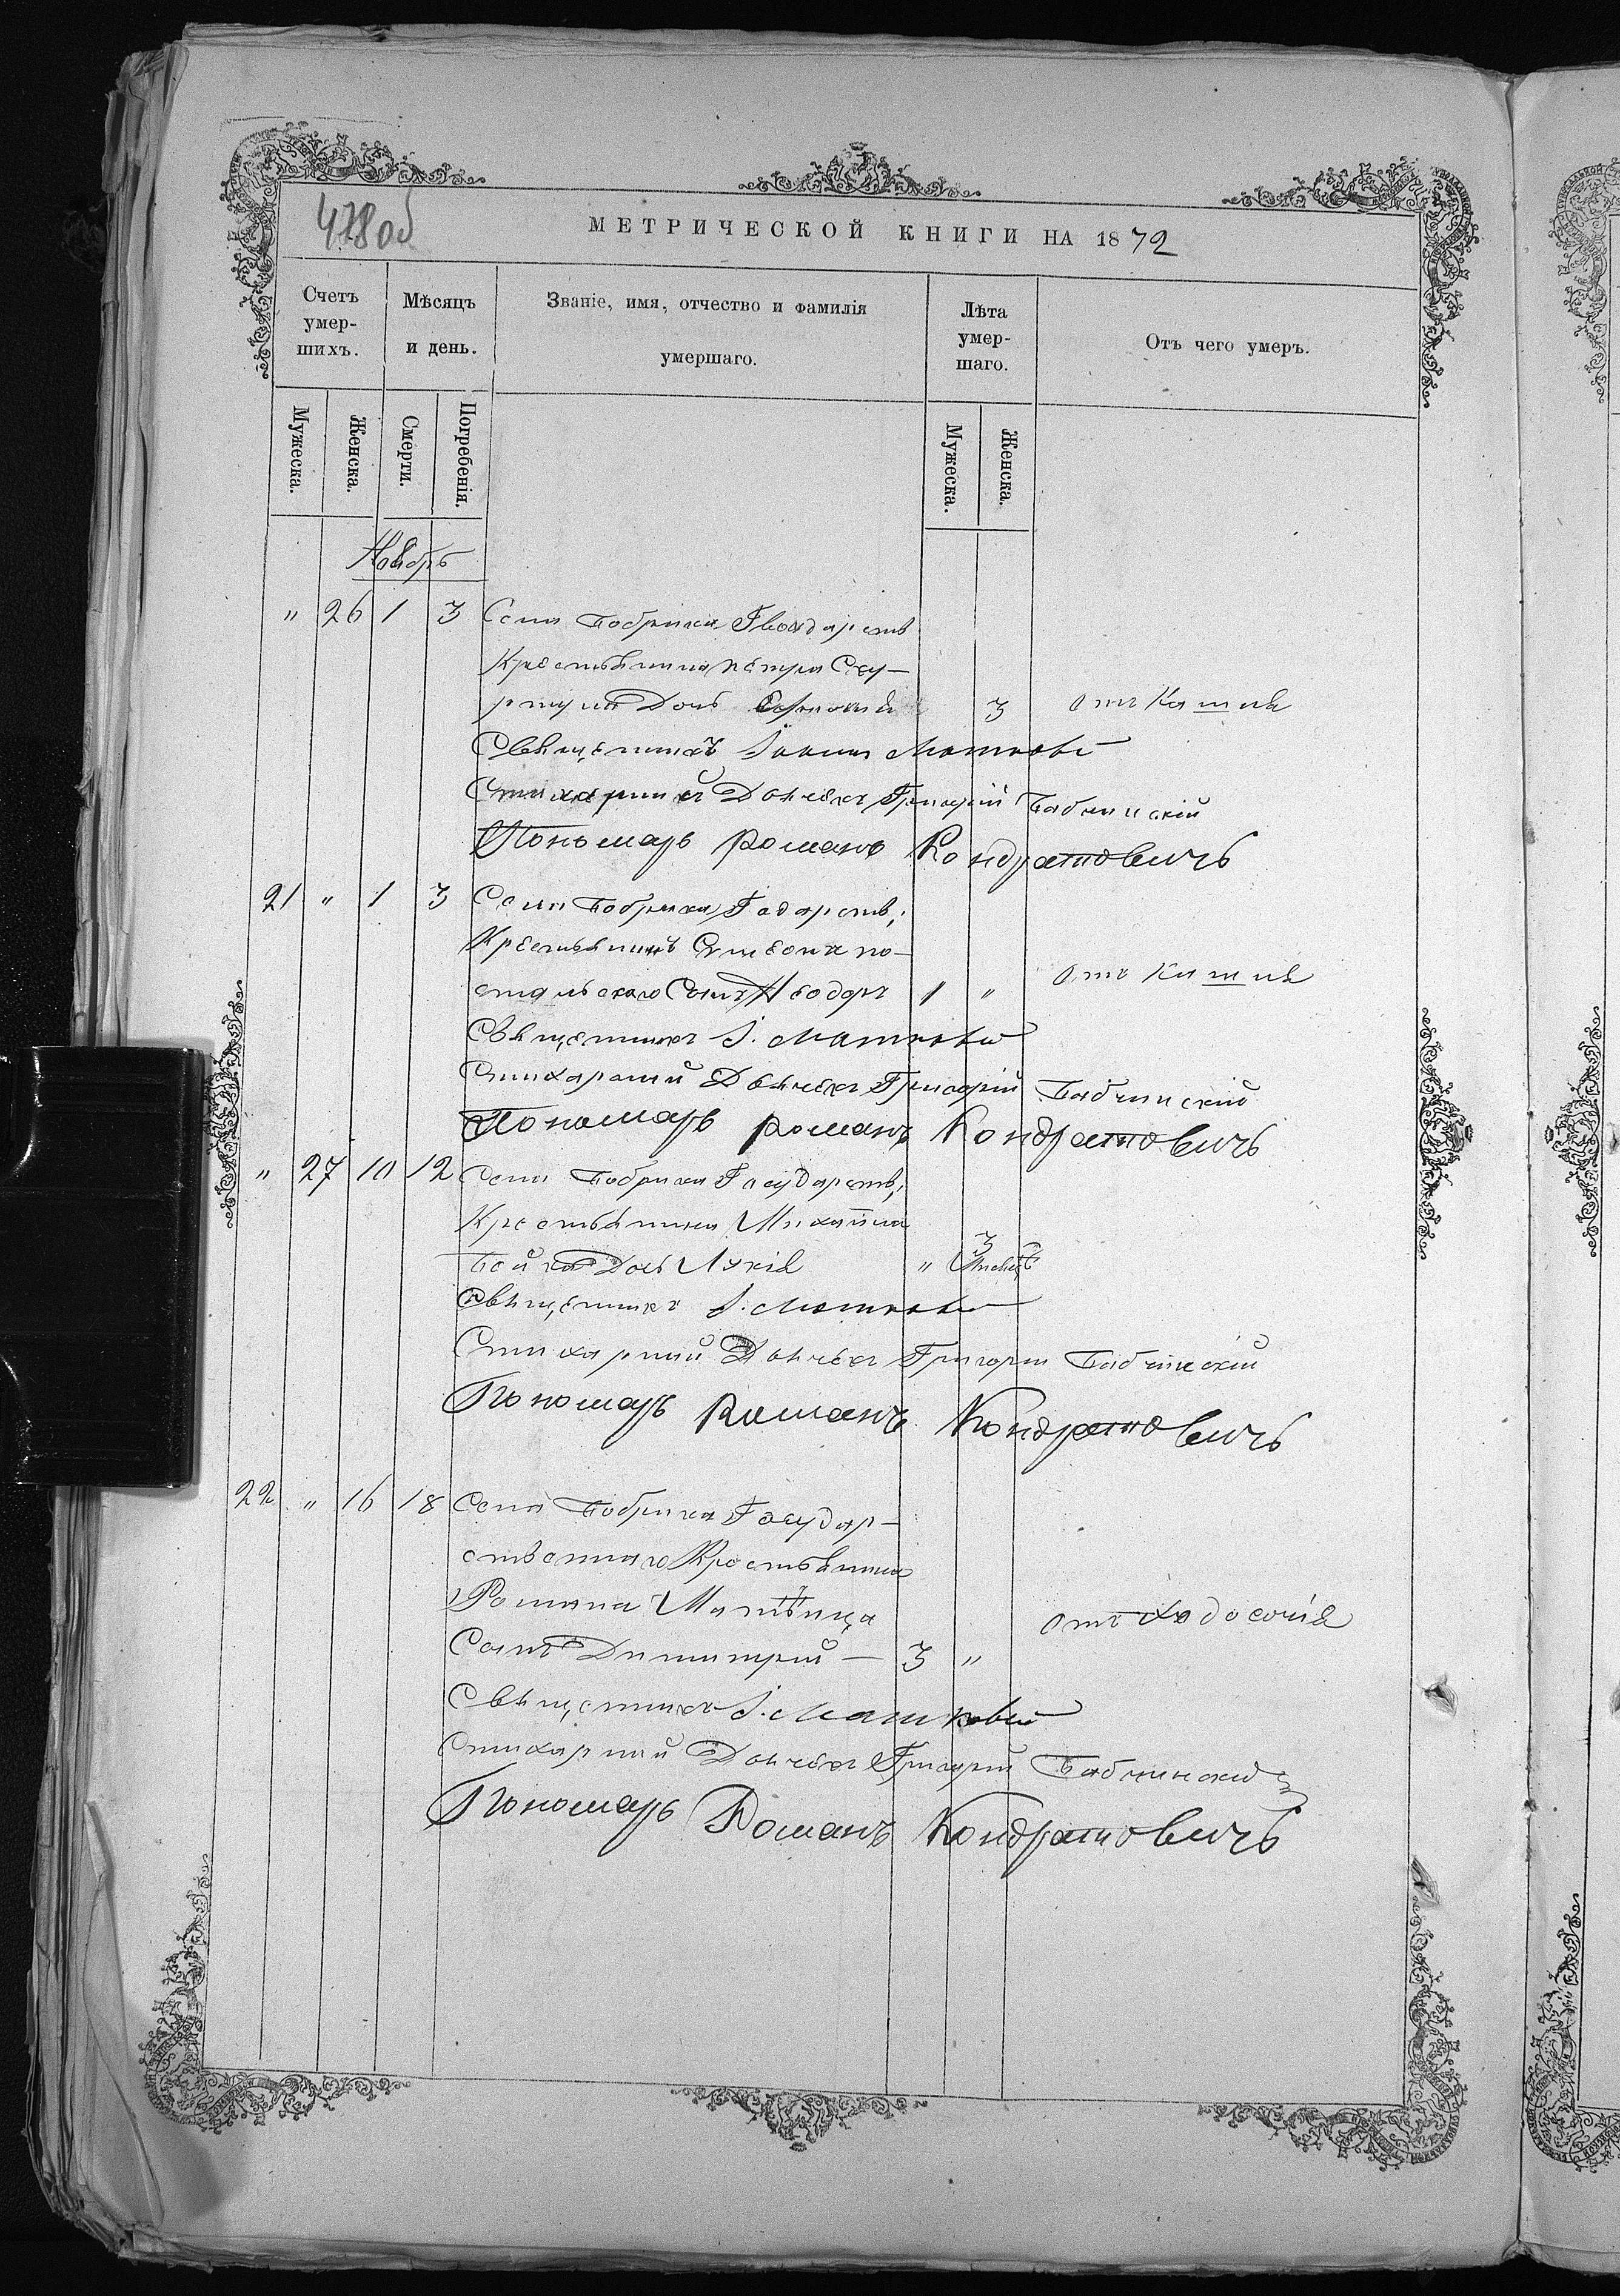 478об
МЕТРИЧЕСКОЙ КНИГИ НА 1872
Счетъ умер-шихъ.
Мѣсяцъ и день.
Званіе, имя, отчество и фамилія умершаго.
Лѣта умер-шаго.
Отъ чего умеръ.
Мужеска.
Женска.
Смерти.
Погребенія.
Мужеска.
Женска.
Ноябрь
" 26 1 3 Села Бобрика
Крестьянина Петра
Дочь 3 отъ Кашля
Священникъ Іоаннъ
Стихарный Дьячекъ Григорій Бабчинскій
Пономарь Романъ Кондратовичъ
21 " 1 3 Села Бобрика
Крестьянинъ Симеона По-
стольского Сынъ Ѳеодоръ 1 " отъ Кашля
Священникъ І.
Стихарный Дьячекъ Григорій Бабчинскій
Пономарь Романъ Кондратовичъ
" 27 10 12 Села Бобрика Государств.
Крестьянина Михаила
Дочь Лукія " 3
Священникъ І.
Стихарный Дьячекъ Григорій Бабчинскій
Пономарь Романъ Кондратовичъ
22 " 16 18 Села Бобрика Государ-
ственнаго Крестьянина
Романа
Сынъ Димитрій — 3 " отъ
Священникъ І.
Стихарный Дьячекъ Григорій Бабчинскій
Пономарь Романъ Кондратовичъ